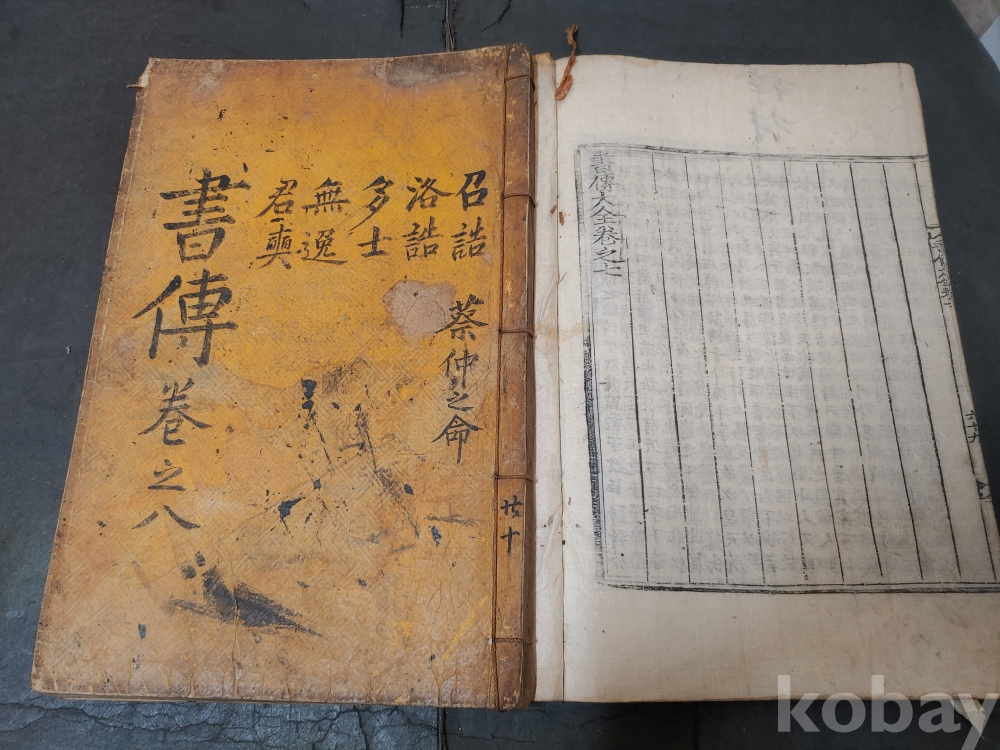 書傳卷之八
召誥
洛誥
多士
無逸
君奭
蔡仲之命
共十
書傳大全卷之七
kobay